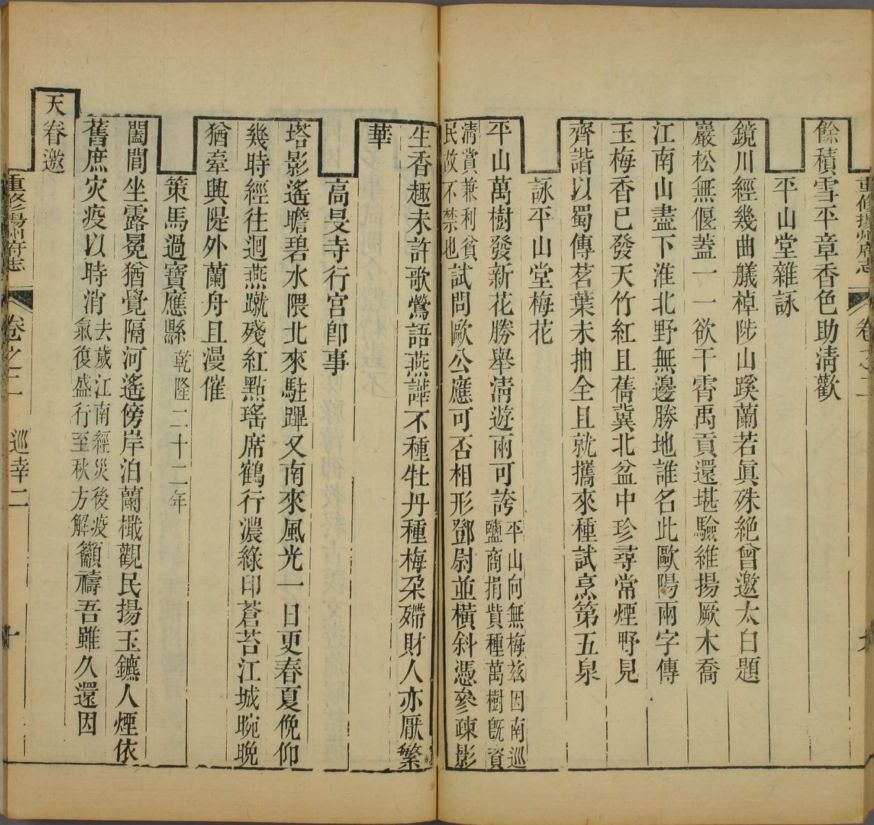 重修揚州府志 卷之二 九
餘積雪平章香色助清歡
平山堂雜詠
鏡川經幾曲艤棹陟山蹊蘭若眞殊絶曾邀太白題
巖松無偃蓋一一欲干霄禹貢還堪驗維揚厥木喬
江南山盡下淮北野無邊勝地誰名此歐陽兩字傳
玉梅香已發天竹紅且蒨冀北盆中珍尋常煙野見
齊諧以蜀傳茗葉未抽全且就攜來種試烹第五泉
詠平山堂梅花
平山萬樹發新花勝舉清遊兩可誇平山向無梅茲因南巡鹽商捐貲種萬樹旣資
清賞兼利貧民故不禁也試問歐公應可否相形鄧尉並橫斜憑參疎影
生香趣未許歌鶯語燕譁不種牡丹種梅朶殢財人亦厭繁
華
高旻寺行宮卽事
塔影遙瞻碧水隈北來駐蹕又南來風光一日更春夏俛仰
幾時經往迴燕蹴殘紅㸃瑤席鶴行濃綠印蒼苔江城晼晚
猶牽興隄外蘭舟且漫催
策馬過寶應縣乾隆二十二年
闤間坐露冕猶覺隔河遙傍岸泊蘭檝觀民揚玉鑣人煙依
舊庶灾疫以時消去歲江南經災後疫氣復盛行至秋方解籲禱吾雖久還因
天眷邀
重修揚州府志 卷之二 巡幸二 十